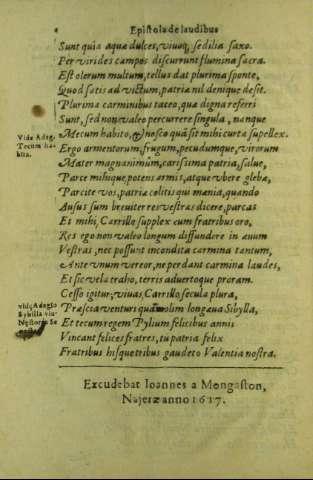 Epistola de laudibus
Sunt quia aquæ dulces, viuoq; sedilia saxo.
Per virides campos discurrunt flumina sacra.
Est olerum multum, tellus dat plurima sponte,
Quod satis ad victum, patria nil denique desit.
Plurima carminibus taceo, quæ digna referri
Sunt, sed non valeo percurrere singula, nanque
Vide Adag.
Mecum habito, & nosco quã sit mihi curta supellex.
Tecum ha-
bita.
Ergo armentorum, frugum, pecudumque, virorum
Mater magnanimûm, carissima patria, salue,
Parce mihique, potens armis, atque vbere glebæ,
Parcite vos, patriæ celitis qui mœnia, quando
Ausus sum breuiter res vestras dicere, parcas
Et mihi, Carrillo supplex cum fratribus oro,
Res ego non valeo longum diffundere in æuum
Vestras, nec possunt incondita carmina tantum,
Ante vnum vereor, ne perdant carmina laudes,
Et sic vela traho, terris aduertoque proram.
Cesso igitur, viuas, Carrillo, secula plura,
vide Adagio
Præscia venturi quam olim longæua Sibylla,
Sybilla viu-
Et tecum regem Pylium felicibus annis
Vincant felices fratres, tu patria felix
Fratribus hisque tribus gaudeto Valentia nostra.
Excudebat Ioannes a Mongaston,
Najeræ anno 1617.